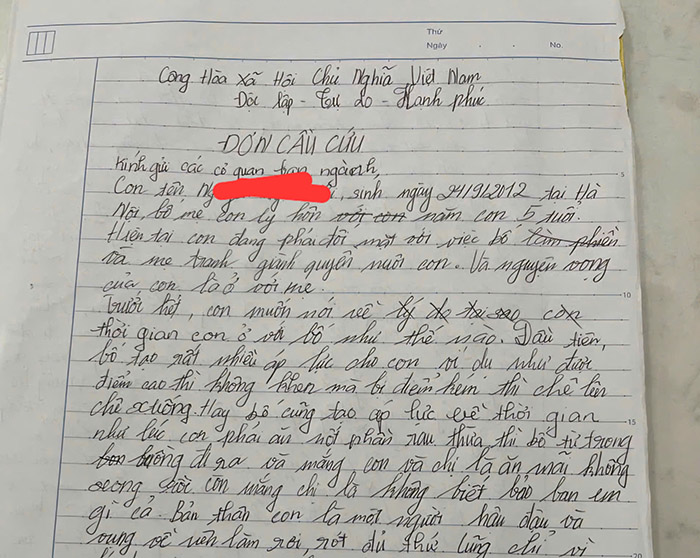 Thứ
Ngày . . No.
Cộng Hòa Xã Hội Chủ Nghĩa Việt Nam
Độc lập - Tự do - Hạnh phúc
ĐƠN CẦU CỨU
Kính gửi các cơ quan ban ngành,
Con tên, Ng , sinh ngày 24/9/2012 tại Hà
Nội, bố mẹ con ly hôn với con năm con 5 tuổi.
Hiện tại con đang phải đối mặt với việc bố làm phiền
và mẹ tranh giành quyền nuôi con. Và nguyện vọng
của con là ở với mẹ.
Trước hết, con muốn nói về lý do tại sao còn
thời gian con ở với bố như thế nào. Đầu tiên,
bố tạo rất nhiều áp lực cho con ví dụ như được
điểm cao thì không khen mà bị điểm kém thì chê lên
chê xuống. Hay bố cũng tạo áp lực về thời gian
như lúc con phải ăn nốt phần rau thừa thì bố từ trong
đi ra và mắng con và chị là ăn mãi không
xong rồi còn mắng chị là không biết bảo ban em
gì cả. Bản thân con là một người hậu đậu và
vụng về nên làm rơi, rớt đủ thứ cũng chỉ vì
5
10
15
20
5